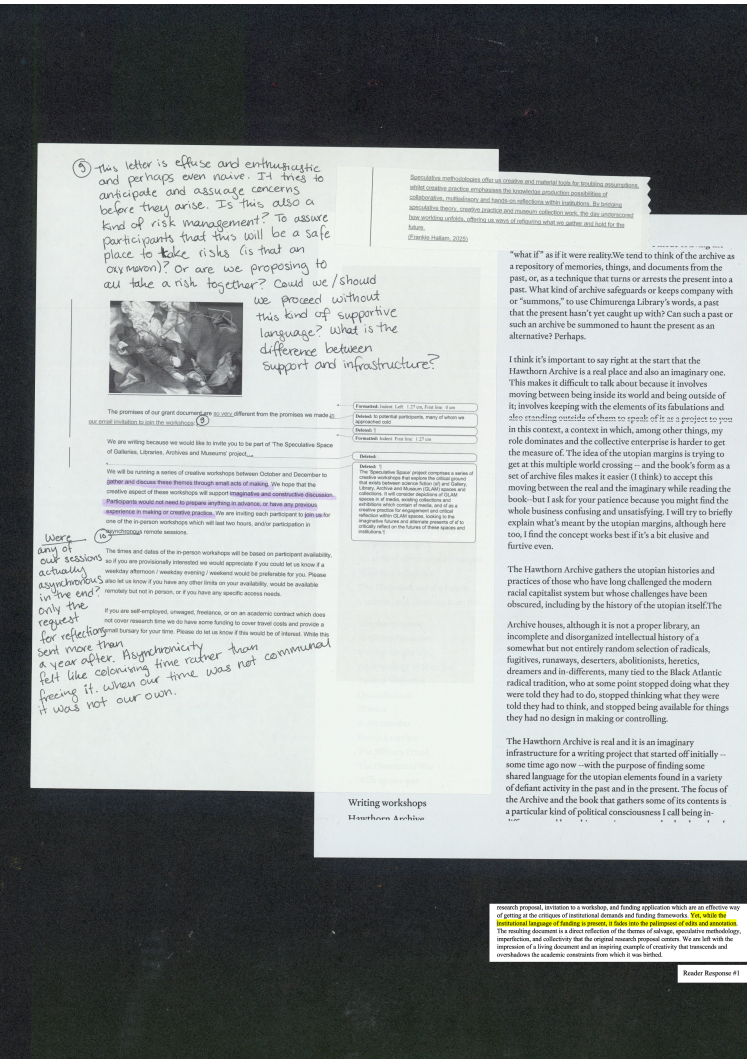 9 This letter is effuse and enthusiastic
and perhaps even naive. It tries to
anticipate and assuage concerns
before they arise. Is this also a
kind of risk management? To assure
participants that this will be a safe
place to take risks (is that an
oxymoron)? Or are we proposing to
all take a risk together? Could we/should
we proceed without
this kind of supportive
language? What is the
difference between
support and infrastructure?
Speculative methodologies offer us creative and material tools for troubling assumptions,
whilst creative practice emphasises the knowledge production possibilities of
collaborative, multisensory and hands-on reflections within institutions. By bridging
speculative theory, creative practice and museum collection work, the day underscored
how worlding unfolds, offering us ways of refiguring what we gather and hold for the
future.
(Frankie Hallam, 2025)
The promises of our grant document are so very different from the promises we made in
our small invitation to join the workshops: 9
We are writing because we would like to invite you to be part of 'The Speculative Space
of Galleries, Libraries, Archives and Museums' project.
We will be running a series of creative workshops between October and December to
gather and discuss these themes through small acts of making. We hope that the
creative aspect of these workshops will support imaginative and constructive discussion.
Participants would not need to prepare anything in advance, or have any previous
experience in making or creative practice. We are inviting each participant to join us for
one of the in-person workshops which will last two hours, and/or participation in
asynchronous remote sessions.
10
The times and dates of the in-person workshops will be based on participant availability,
so if you are provisionally interested we would appreciate if you could let us know if a
weekday afternoon / weekday evening / weekend would be preferable for you. Please
also let us know if you have any other limits on your availability, would be available
remotely but not in person, or if you have any specific access needs.
If you are self-employed, unwaged, freelance, or on an academic contract which does
not cover research time we do have some funding to cover travel costs and provide a
small bursary for your time. Please do let us know if this would be of interest. While this
Were
any of
our sessions
actually
asynchronous
in the end?
Only the
request
for reflections
sent more than
a year after. Asynchronicity
felt like colonising time rather than
freeing it. When our time was not communal
it was not our own.
Formatted: Indent: Left: 1.27 cm, First line: 0 cm
Deleted: to potential participants, many of whom we
approached cold
Deleted: ¶
Formatted: Indent: First line: 1.27 cm
Deleted:
Deleted: ¶
The 'Speculative Space' project comprises a series of
creative workshops that explore the critical ground
that exists between science fiction (sf) and Gallery,
Library, Archive and Museum (GLAM) spaces and
collections. It will consider depictions of GLAM
spaces in sf media, existing collections and
exhibitions which contain sf media, and sf as a
creative practice for engagement and critical
reflection within GLAM spaces, looking to the
imaginative futures and alternate presents of sf to
critically reflect on the futures of these spaces and
institutions.¶
"what if" as if it were reality.We tend to think of the archive as
a repository of memories, things, and documents from the
past, or, as a technique that turns or arrests the present into a
past. What kind of archive safeguards or keeps company with
or "summons," to use Chimurenga Library's words, a past
that the present hasn't yet caught up with? Can such a past or
such an archive be summoned to haunt the present as an
alternative? Perhaps.
I think it's important to say right at the start that the
Hawthorn Archive is a real place and also an imaginary one.
This makes it difficult to talk about because it involves
moving between being inside its world and being outside of
it; involves keeping with the elements of its fabulations and
also standing outside of them to speak of it as a project to you
in this context, a context in which, among other things, my
role dominates and the collective enterprise is harder to get
the measure of. The idea of the utopian margins is trying to
get at this multiple world crossing -- and the book's form as a
set of archive files makes it easier (I think) to accept this
moving between the real and the imaginary while reading the
book--but I ask for your patience because you might find the
whole business confusing and unsatisfying. I will try to briefly
explain what's meant by the utopian margins, although here
too, I find the concept works best if it's a bit elusive and
furtive even.
The Hawthorn Archive gathers the utopian histories and
practices of those who have long challenged the modern
racial capitalist system but whose challenges have been
obscured, including by the history of the utopian itself.The
Archive houses, although it is not a proper library, an
incomplete and disorganized intellectual history of a
somewhat but not entirely random selection of radicals,
fugitives, runaways, deserters, abolitionists, heretics,
dreamers and in-differents, many tied to the Black Atlantic
radical tradition, who at some point stopped doing what they
were told they had to do, stopped thinking what they were
told they had to think, and stopped being available for things
they had no design in making or controlling.
The Hawthorn Archive is real and it is an imaginary
infrastructure for a writing project that started off initially --
some time ago now --with the purpose of finding some
shared language for the utopian elements found in a variety
of defiant activity in the past and in the present. The focus of
the Archive and the book that gathers some of its contents is
a particular kind of political consciousness I call being in-
Writing workshops
Hawthorn Archive
research proposal, invitation to a workshop, and funding application which are an effective way
of getting at the critiques of institutional demands and funding frameworks. Yet, while the
institutional language of funding is present, it fades into the palimpsest of edits and annotation.
The resulting document is a direct reflection of the themes of salvage, speculative methodology,
imperfection, and collectivity that the original research proposal centers. We are left with the
impression of a living document and an inspiring example of creativity that transcends and
overshadows the academic constraints from which it was birthed.
Reader Response #1